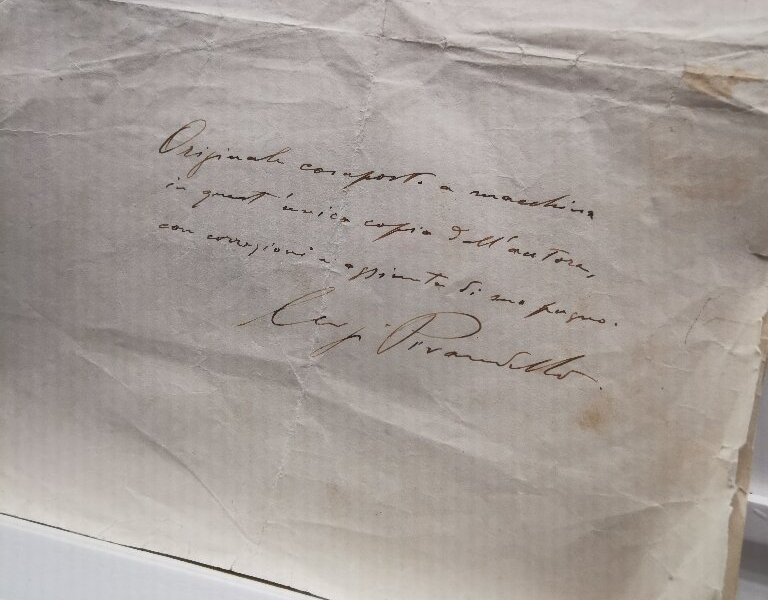 Originale composto a macchina
in quest'unica copia dall'autore,
con correzioni e aggiunte di suo pugno.
Luigi Pirandello